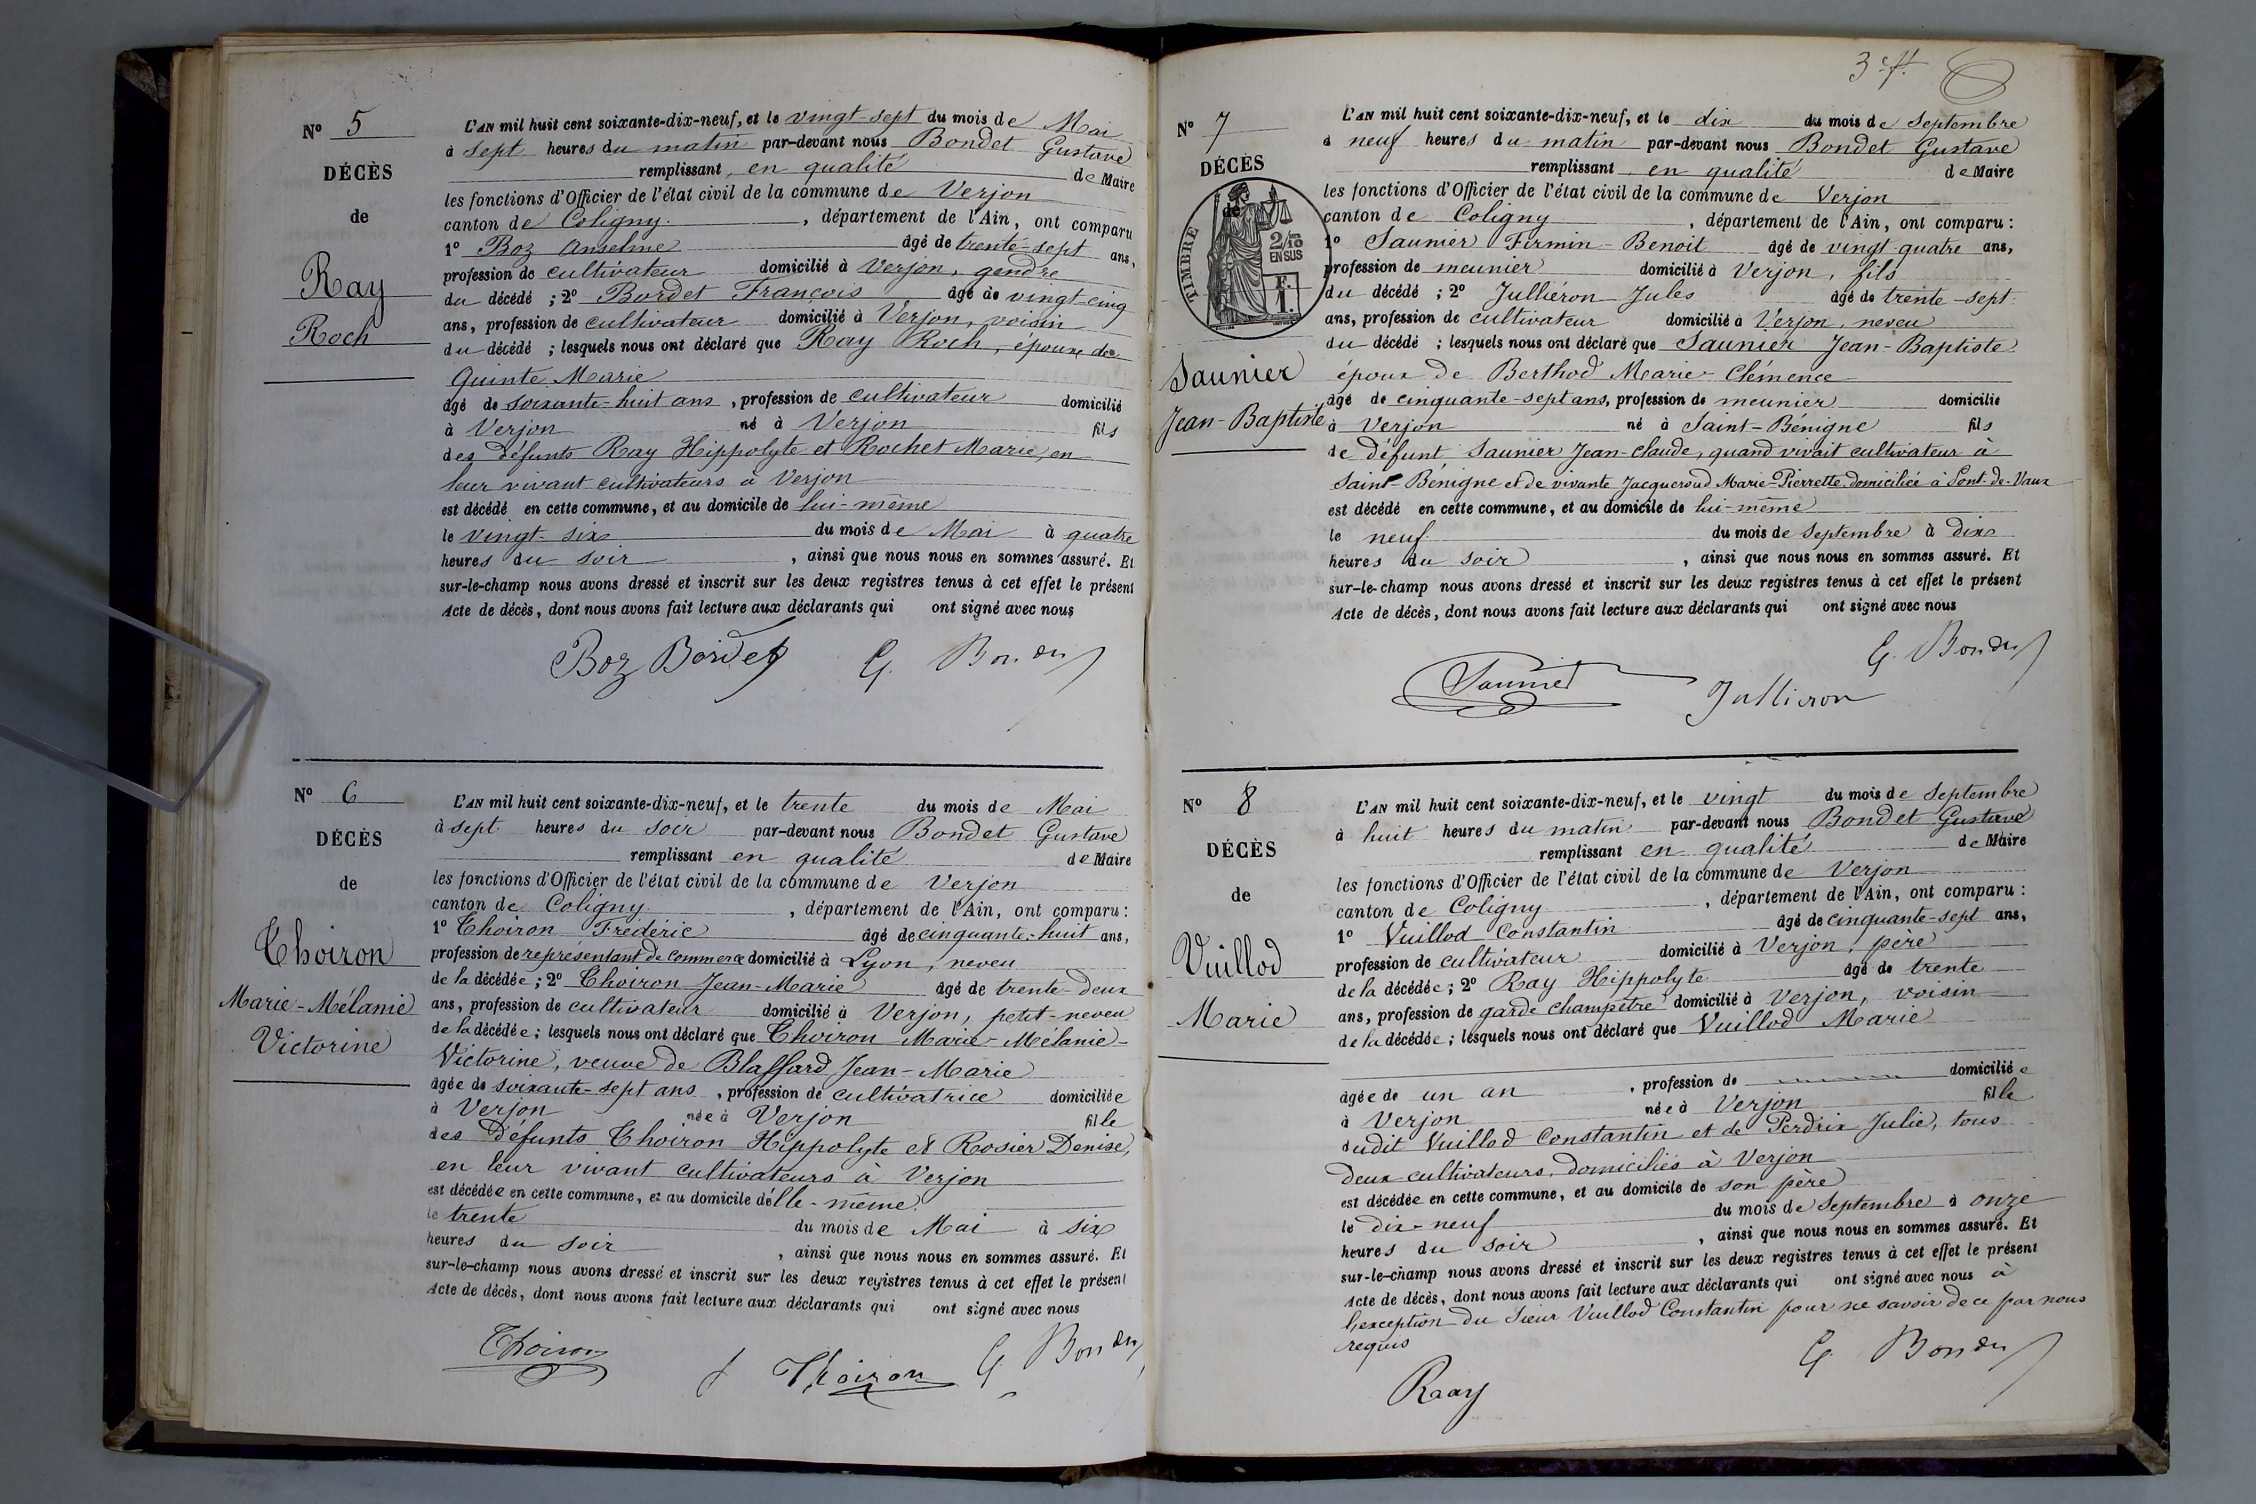 N° 5
DÉCÈS
de
Ray
Roch
L'AN mil huit cent soixante-dix-neuf, et le vingt-sept du mois de Mai
à sept heures du matin par-devant nous Bondet Gustave
remplissant en qualité de Maire
les fonctions d'Officier de l'état civil de la commune de Verjon
canton de Coligny, département de l'Ain, ont comparu
1° Boz Anselme âgé de trente-sept ans,
profession de cultivateur domicilié à Verjon, gendre
du décédé ; 2° Bordet François âgé de vingt-cinq
ans, profession de cultivateur domicilié à Verjon, voisin
du décédé ; lesquels nous ont déclaré que Ray Roch, époux de
Quinte Marie
âgé de soixante-huit ans, profession de cultivateur domicilié
à Verjon né à Verjon fils
des défunts Ray Hippolyte et Rochet Marie, en
leur vivant cultivateurs à Verjon
est décédé en cette commune, et au domicile de lui-même
le vingt-six du mois de Mai à quatre
heures du soir, ainsi que nous nous en sommes assuré. Et
sur-le-champ nous avons dressé et inscrit sur les deux registres tenus à cet effet le présent
Acte de décès, dont nous avons fait lecture aux déclarants qui ont signé avec nous
Boz Bordet G. Bondet
N° 6
DÉCÈS
de
Thoiron
Marie-Mélanie
Victorine
L'AN mil huit cent soixante-dix-neuf, et le trente du mois de Mai
à sept heures du soir par-devant nous Bondet Gustave
remplissant en qualité de Maire
les fonctions d'Officier de l'état civil de la commune de Verjon
canton de Coligny, département de l'Ain, ont comparu :
1° Thoiron Frédéric âgé de cinquante-huit ans,
profession de représentant de commerce domicilié à Lyon, neveu
de la décédée ; 2° Thoiron Jean-Marie âgé de trente-deux
ans, profession de cultivateur domicilié à Verjon, petit-neveu
de la décédée ; lesquels nous ont déclaré que Thoiron Marie-Mélanie-
Victorine, veuve de Blaffard Jean-Marie
âgée de soixante-sept ans, profession de cultivatrice domiciliée
à Verjon née à Verjon fille
des défunts Thoiron Hippolyte et Rosier Denise,
en leur vivant cultivateurs à Verjon
est décédée en cette commune, et au domicile d'elle-même
le trente du mois de Mai à six
heures du soir, ainsi que nous nous en sommes assuré. Et
sur-le-champ nous avons dressé et inscrit sur les deux registres tenus à cet effet le présent
Acte de décès, dont nous avons fait lecture aux déclarants qui ont signé avec nous
Thoiron Thoiron G. Bondet
3e f.
N° 7
DÉCÈS
de
TIMBRE
2/10 EN SUS
F. 1.
Saunier
Jean-Baptiste
L'AN mil huit cent soixante-dix-neuf, et le dix du mois de Septembre
à neuf heures du matin par-devant nous Bondet Gustave
remplissant en qualité de Maire
les fonctions d'Officier de l'état civil de la commune de Verjon
canton de Coligny, département de l'Ain, ont comparu :
1° Saunier Firmin-Benoit âgé de vingt-quatre ans,
profession de meunier domicilié à Verjon, fils
du décédé ; 2° Julliéron Jules âgé de trente-sept
ans, profession de cultivateur domicilié à Verjon, neveu
du décédé ; lesquels nous ont déclaré que Saunier Jean-Baptiste
époux de Berthod Marie-Clémence
âgé de cinquante-sept ans, profession de meunier domicilié
à Verjon né à Saint-Bénigne fils
de défunt Saunier Jean-Claude, quand vivait cultivateur à
Saint-Bénigne et de vivante Jacqueroud Marie-Pierrette domiciliée à Pont-de-Vaux
est décédé en cette commune, et au domicile de lui-même
le neuf du mois de Septembre à dix
heures du soir, ainsi que nous nous en sommes assuré. Et
sur-le-champ nous avons dressé et inscrit sur les deux registres tenus à cet effet le présent
Acte de décès, dont nous avons fait lecture aux déclarants qui ont signé avec nous
G. Bondet
Saunier Jullieron
N° 8
DÉCÈS
de
Vuillod
Marie
L'AN mil huit cent soixante-dix-neuf, et le vingt du mois de Septembre
à huit heures du matin par-devant nous Bondet Gustave
remplissant en qualité de Maire
les fonctions d'Officier de l'état civil de la commune de Verjon
canton de Coligny, département de l'Ain, ont comparu :
1° Vuillod Constantin âgé de cinquante-sept ans,
profession de cultivateur domicilié à Verjon, père
de la décédée ; 2° Ray Hippolyte âgé de trente
ans, profession de garde champêtre domicilié à Verjon, voisin
de la décédée ; lesquels nous ont déclaré que Vuillod Marie
âgée de un an, profession de domiciliée
à Verjon née à Verjon fille
dudit Vuillod Constantin et de Perdrix Julie, tous
deux cultivateurs, domiciliés à Verjon
est décédée en cette commune, et au domicile de son père
le dix-neuf du mois de Septembre à onze
heures du soir, ainsi que nous nous en sommes assuré. Et
sur-le-champ nous avons dressé et inscrit sur les deux registres tenus à cet effet le présent
Acte de décès, dont nous avons fait lecture aux déclarants qui ont signé avec nous à
l'exception du Sieur Vuillod Constantin pour ne savoir de ce par nous
requis
G. Bondet
Raay